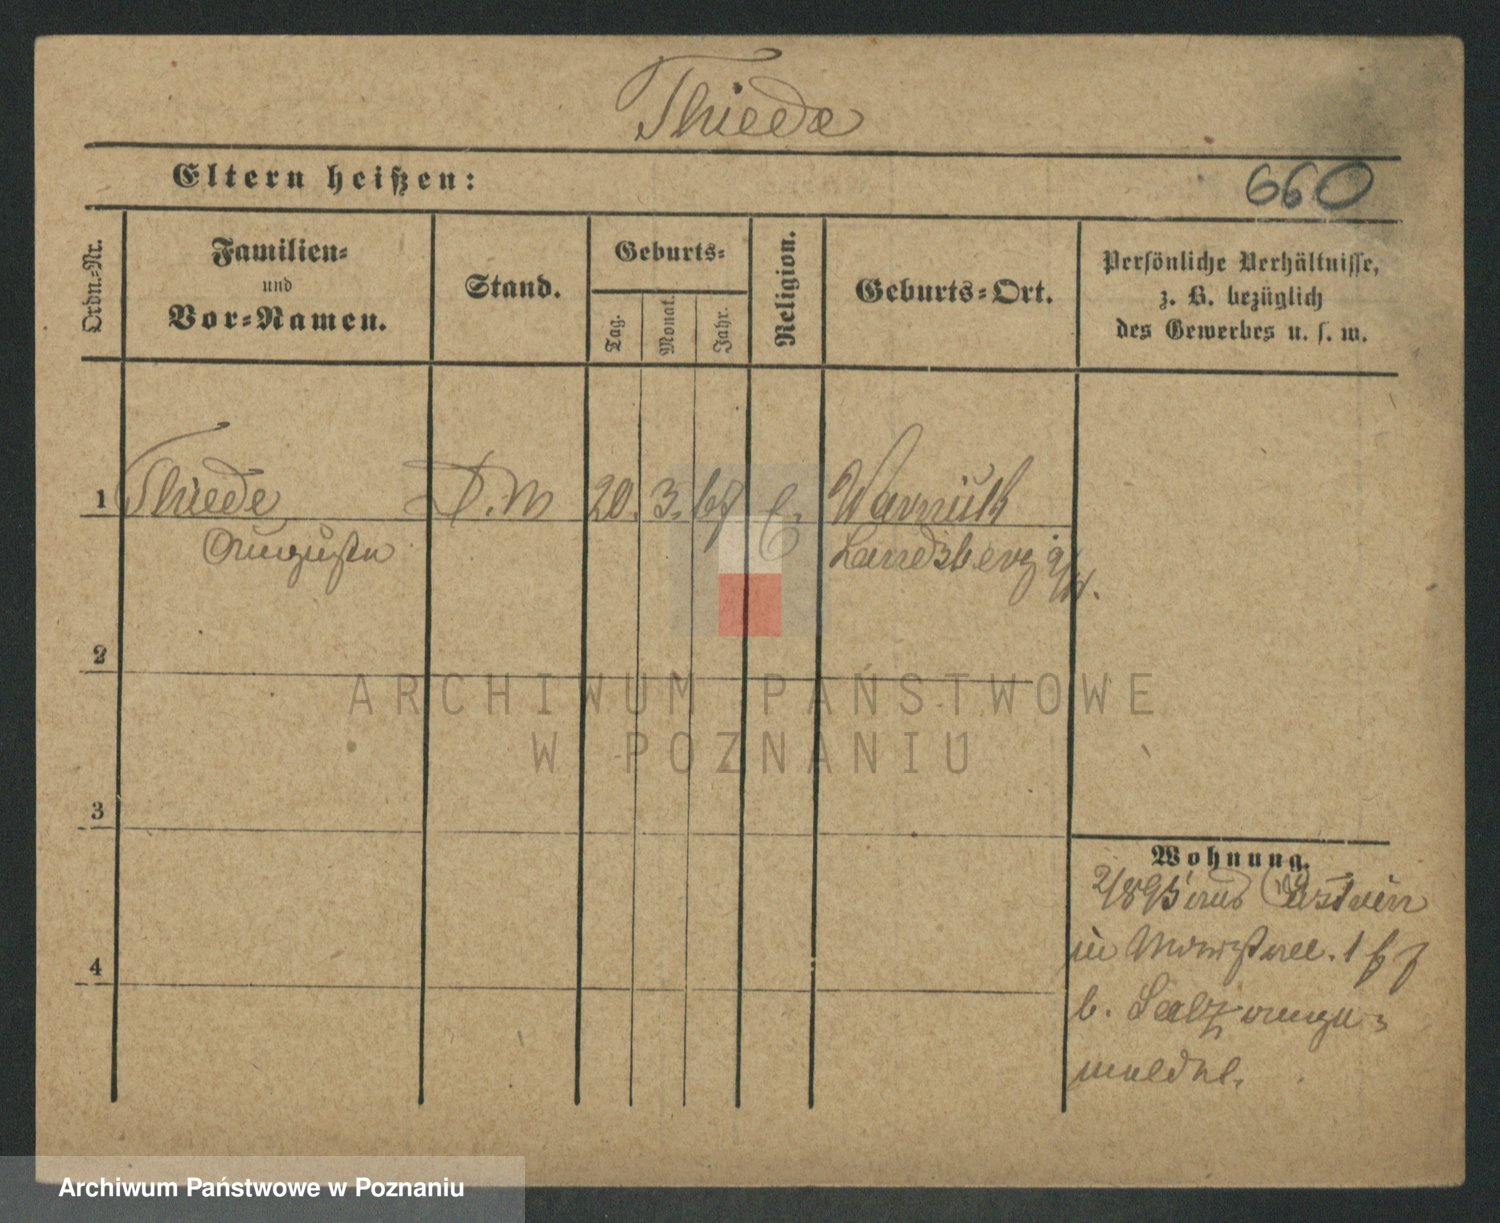 Thiede
Eltern heißen:
660
Ordn.-Nr.
Familien-
und
Vor-Namen.
Stand.
Geburts-
Tag.
Monat.
Jahr.
Religion.
Geburts-Ort.
Persönliche Verhältnisse,
z. B. bezüglich
des Gewerbes u. s. w.
1 Thiede D. M 20. 3. 67 E. Warnick
Auguste Landsberg a/W.
2
ARCHIWUM PAŃSTWOWE
W POZNANIU
3
Wohnung.
2/8 95 aus
in 1
4
b. Salz ange-
meldet.
Archiwum Państwowe w Poznaniu